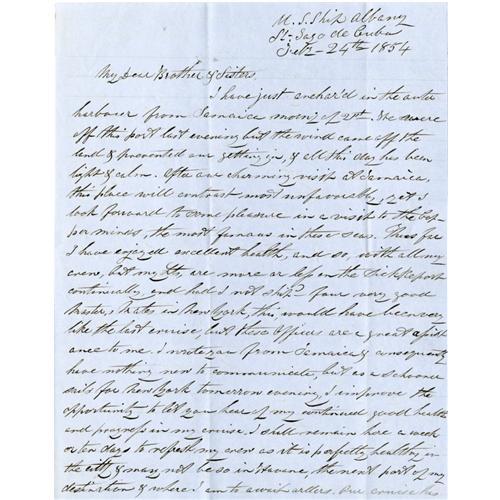 U.S. Ship Albany
St. Jago de Cuba
Feb. 24th 1854
My Dear Brother & Sisters,
I have just anchor'd in the outer
harbour from Jamaica morng of 21st. We were
off this port last evening but the wind came off the
land & prevented our getting in, & all this day has been
light & calm. After our charming visit at Jamaica,
this place will contrast most unfavourably, yet I
look forward to some pleasure in a visit to the Cop-
per mines, the most famous in these seas. Thus far
I have enjoyed excellent health, and so, with all my
crew, but my are more or less on the Sick Report
continually, and had I not ship'd four very good
Masters Mates in New York, this, would have been very
like the last cruise but these Officers are a great assist
ance to me. I wrote you from Jamaica & consequently
have nothing new to communicate, but as a schooner
sails for New York tomorrow evening, I improve the
opportunity to let you hear of my continued good health
and progress in my cruise. I shall remain here a week
or ten days to refresh my crew as it is perfectly healthy in
the city & may not be so in Havana, the next port of my
destination & where I am to await orders. Our cruise has